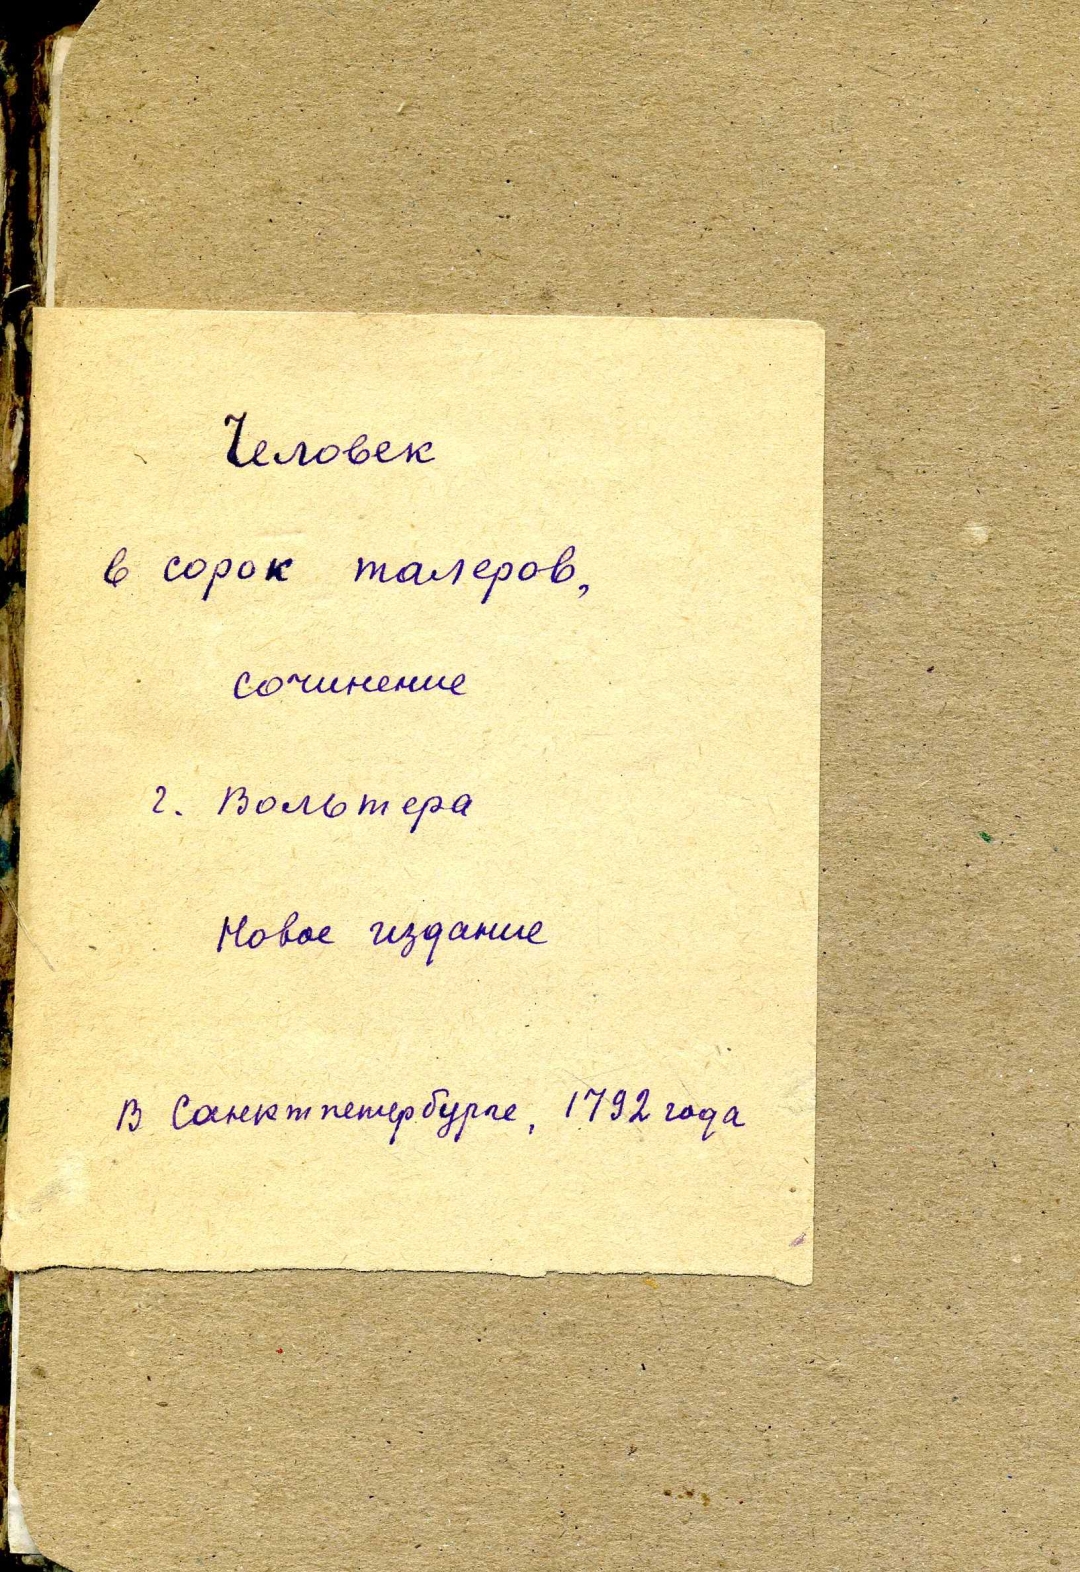 Человек
в сорок талеров,
сочинение
г. Вольтера
Новое издание
В Санктпетербурге, 1792 года